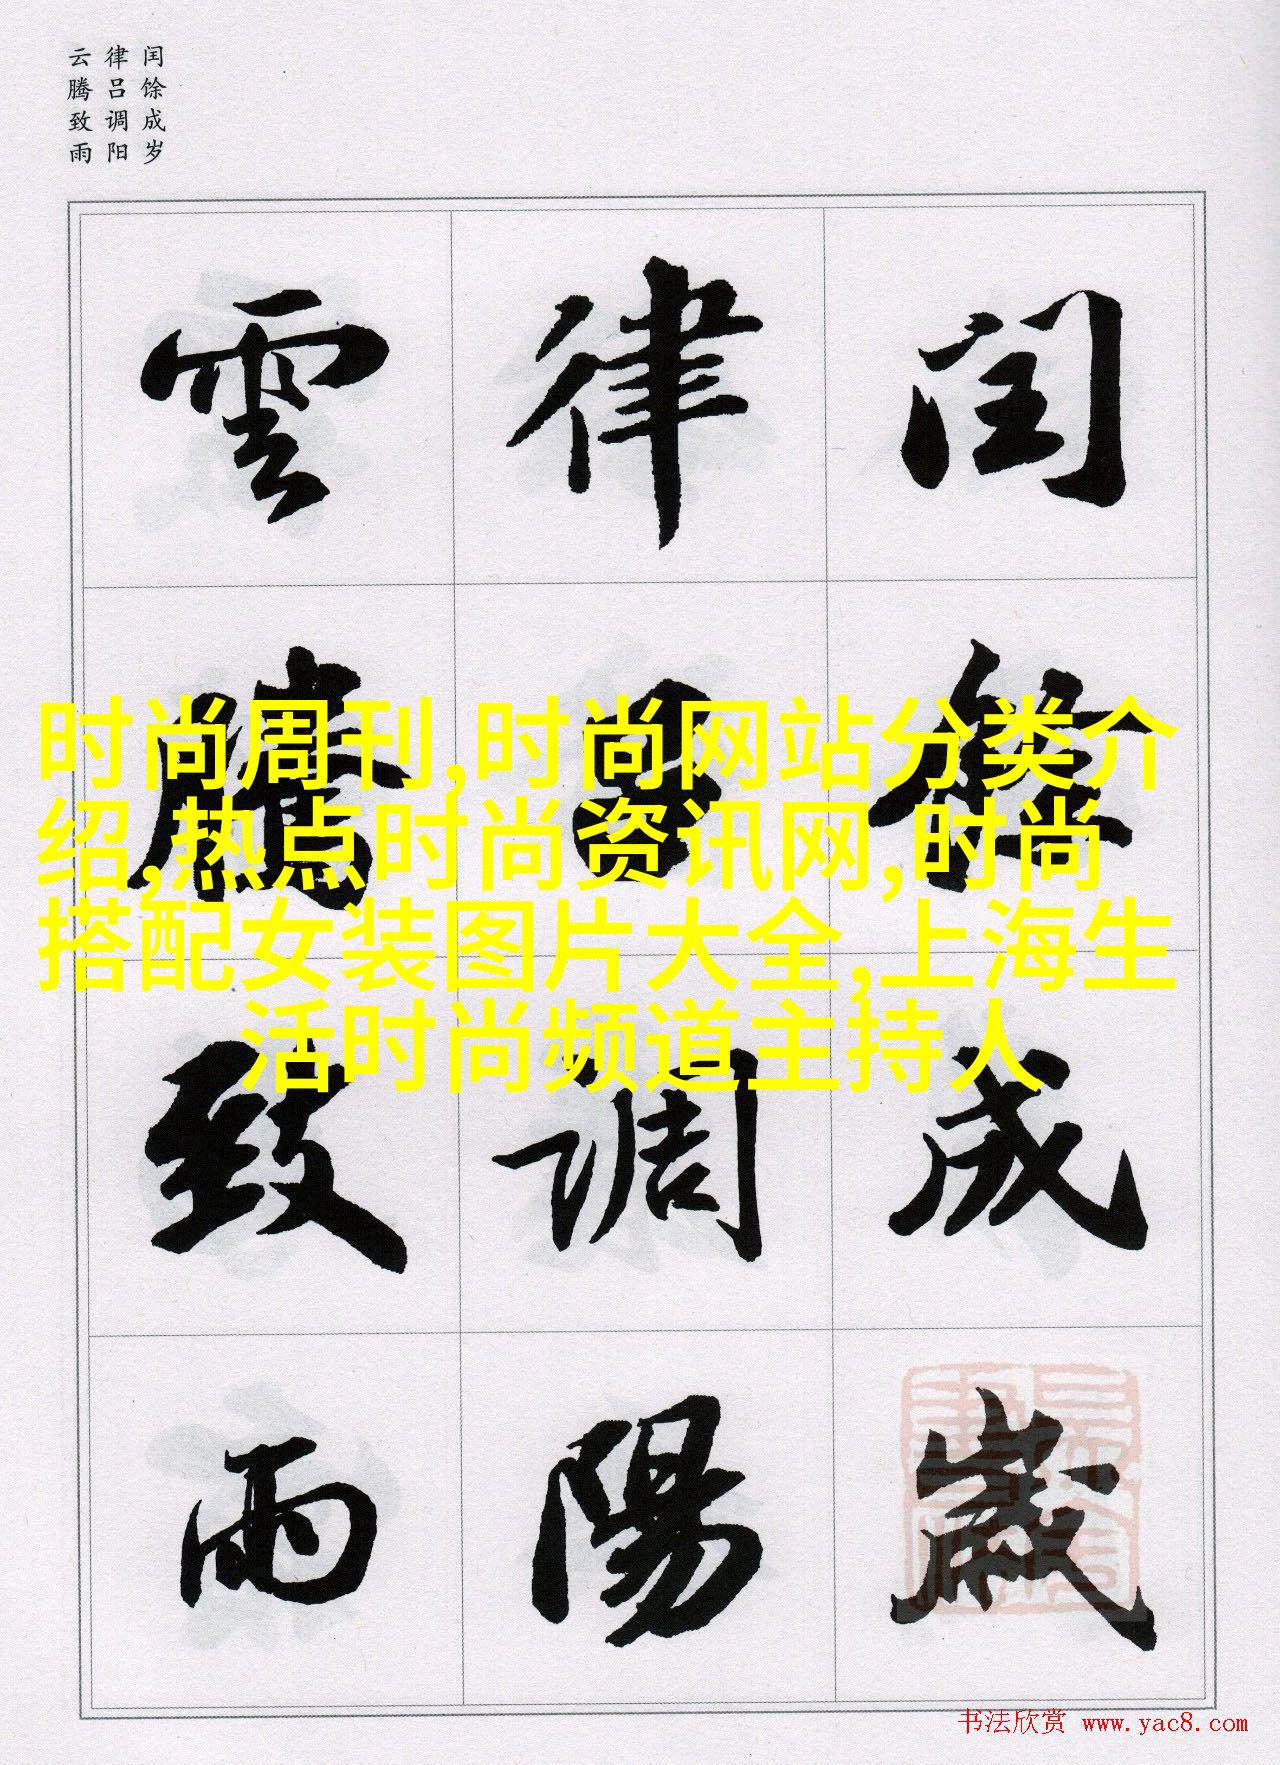 闰馀成岁
律吕调阳
云腾致雨
閏餘成歲
律呂調陽
雲騰致雨
时尚周刊,时尚网站分类介
绍,热点时尚资讯网,时尚
搭配女装图片大全,上海生
活时尚频道主持人
书法欣赏 www.yac8.com